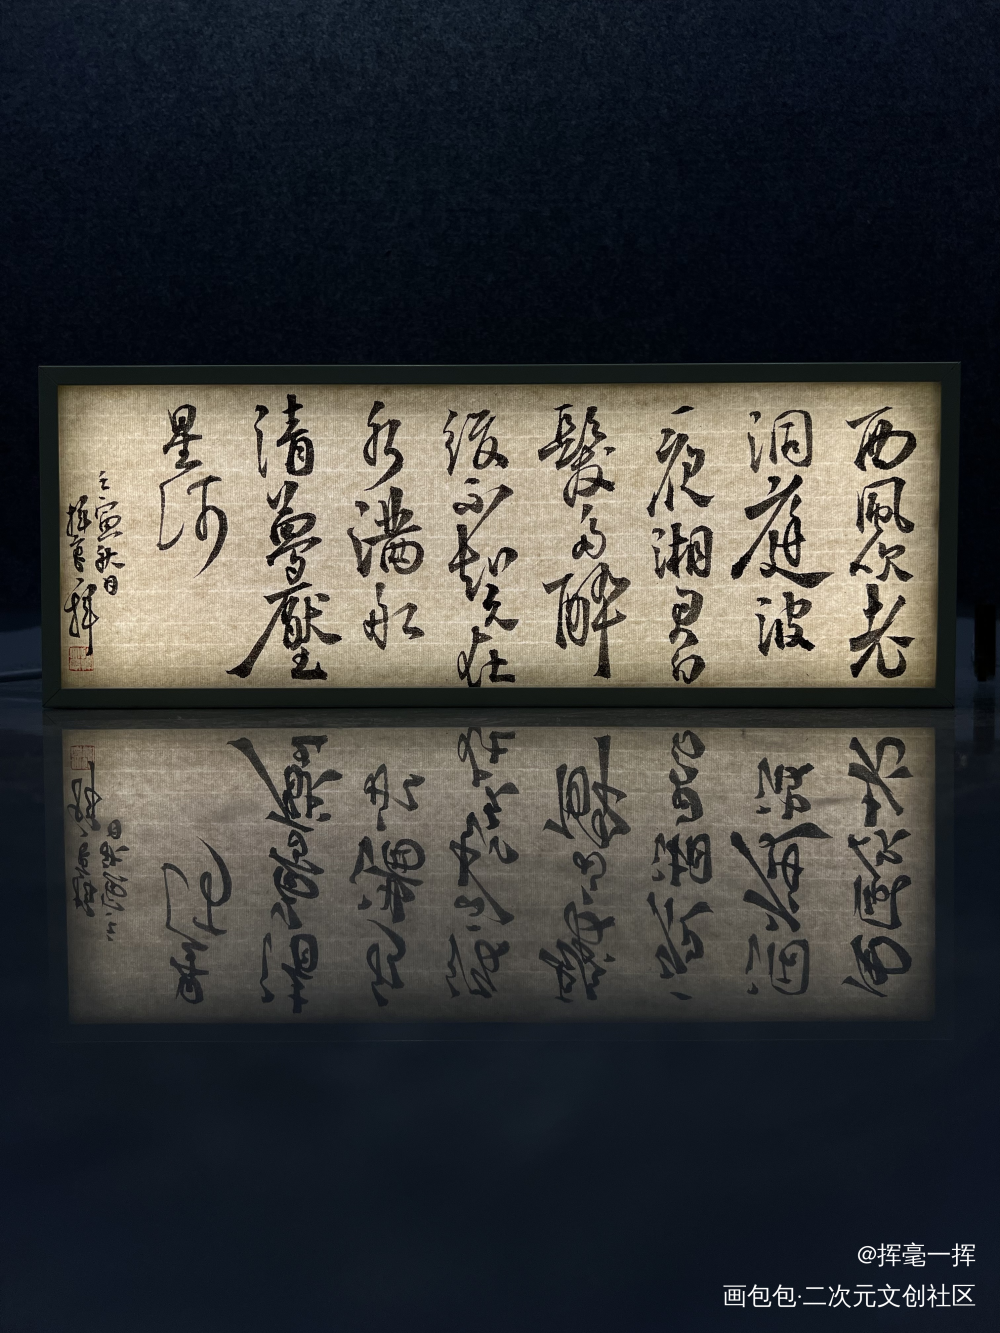 西風吹老
洞庭波
一夜湘君白
髮多醉
後不知天在
水滿船
清夢壓
星河
壬寅秋日
揮毫一揮
@挥毫一挥
画包包·二次元文创社区